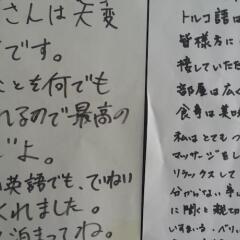 さんは大変
です。
ことを何でも
れるので最高の
だよ。
英語でも、ていねい
くれました。
泊まってね。
トルコ語は
皆様方に
接していただ
部屋は広く
食事は美味
私はとてもつ
マッサージをし
リラックスして
分からない事
に聞くと親切